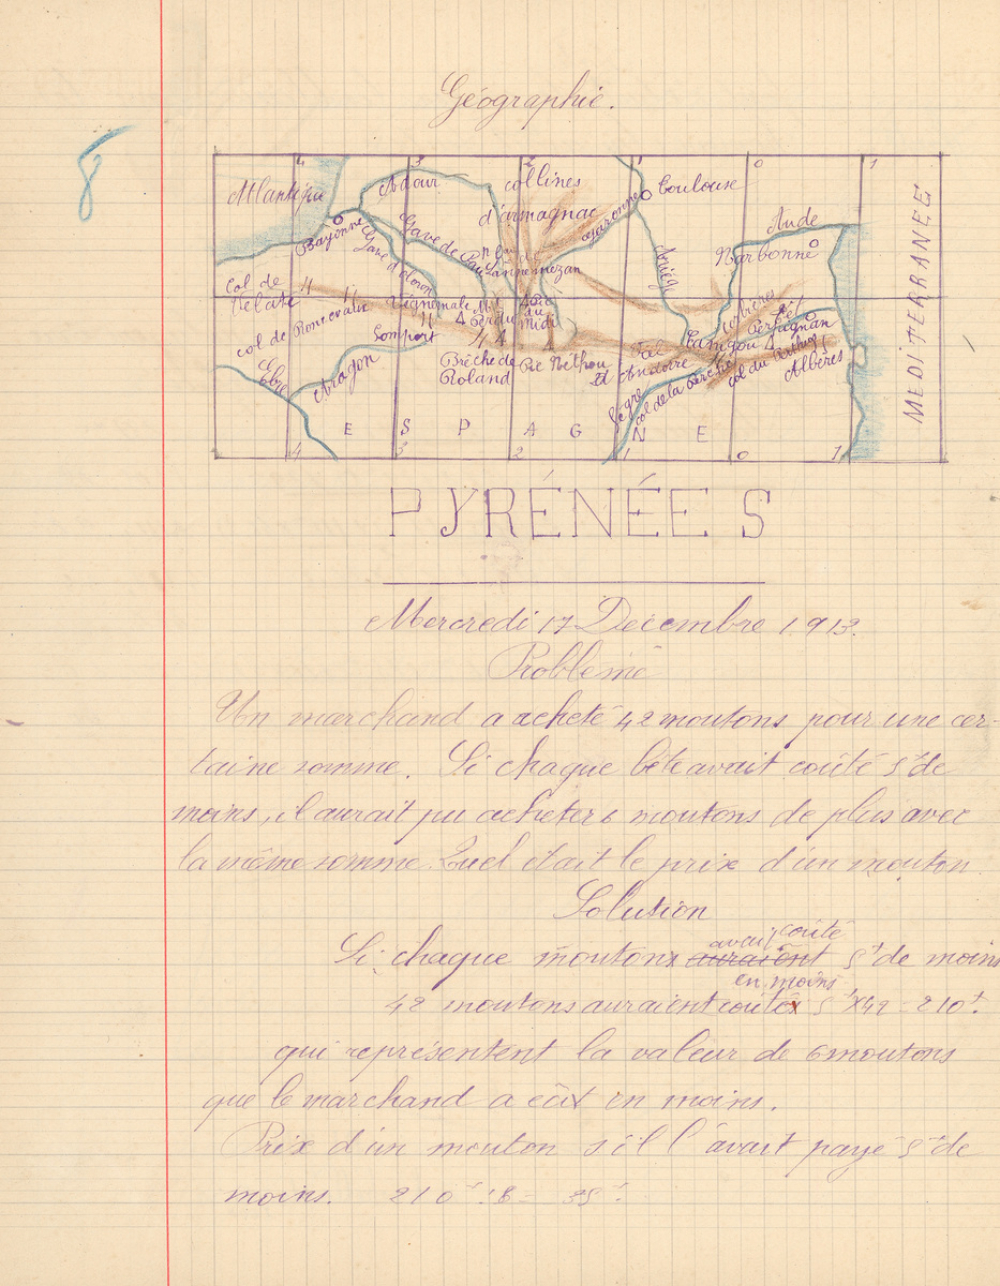 Géographie.
8
4 3 2 1 0 1
Atlantique
Adour
collines
d'armagnac
Toulouse
Garonne
Aude
Narbonne
Bayonne
Gave d'oloron
Gave de Pau
de
Lannemezan
Ariège
MEDITERRANEE
Col de
Velate
col de Roncevaux
Somport
Vignemale
Mt
Perdu
Pic
du
midi
Corbières
Perpignan
Canigou
Brèche de
Roland
Pic Néthou
Val
d'Andorre
col de la Perche
col du Perthus
Albères
Sègre
Ebre
Aragon
E S P A G N E
4 3 2 1 0 1
PYRÉNÉES
Mercredi 17 Décembre 1913.
Problème
Un marchand a acheté 42 moutons pour une cer-
taine somme. Si chaque bête avait coûté 5f de
moins, il aurait pu acheter 6 moutons de plus avec
la même somme. Quel était le prix d'un mouton
Solution
avait coûté
Si chaque moutons auraient 5f de moins
en moins
42 moutons auraient coûtés 5f x 42 = 210f.
qui représentent la valeur de 6 moutons
que le marchand a eux en moins.
Prix d'un mouton s'il l'avait payé 5f de
moins. 210f : 6 = 35f.